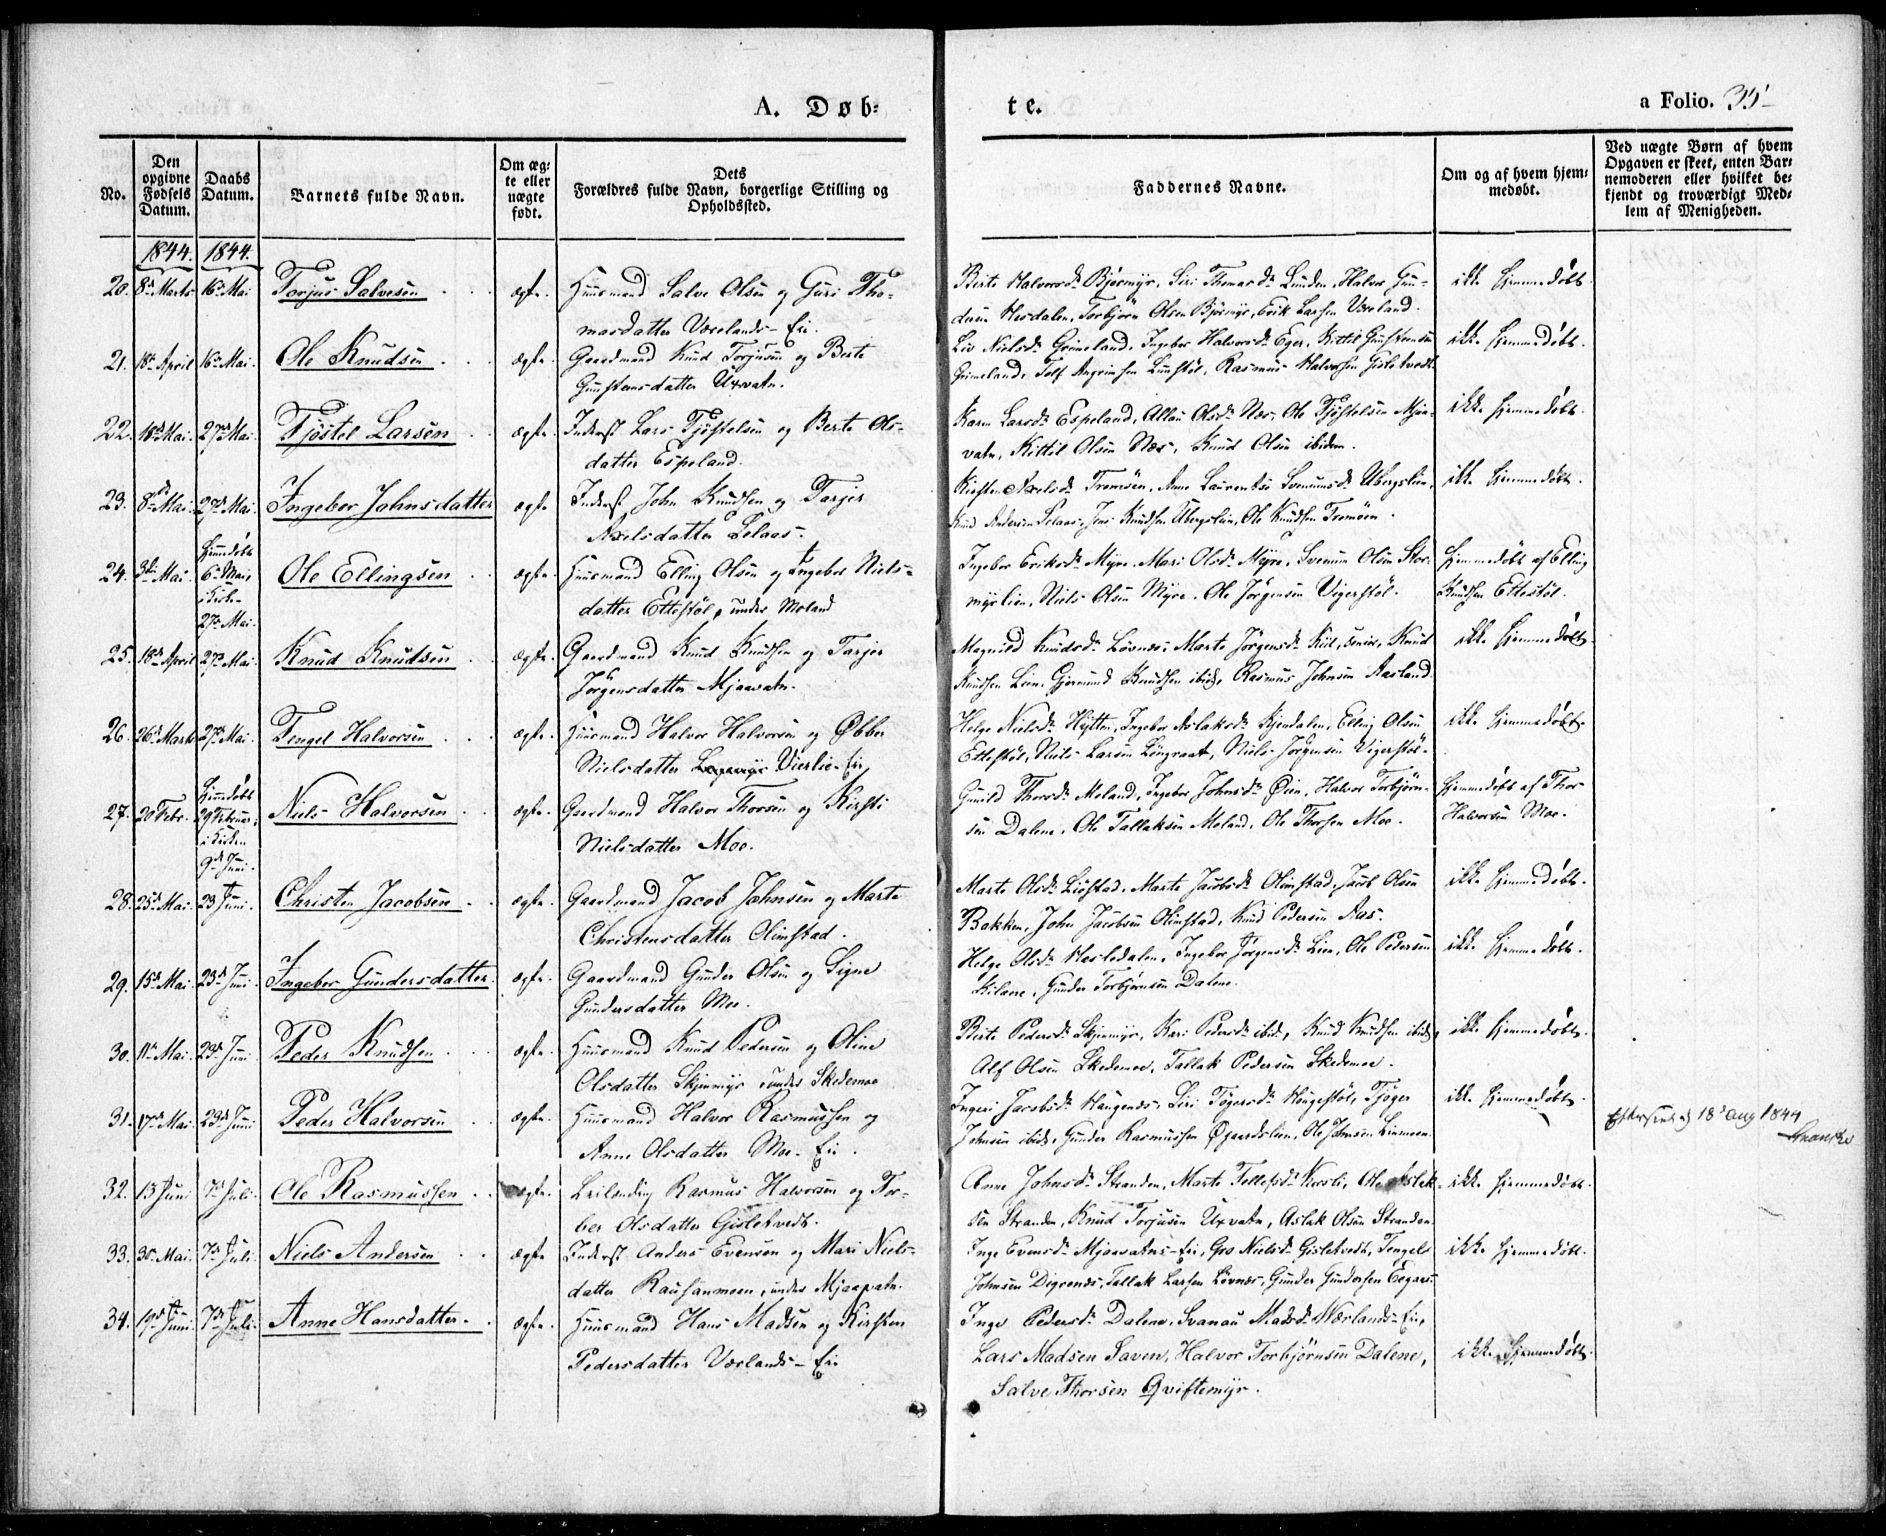 A. Døb-
te.
a Folio. 35
No.
Den opgivne Fødsels Datum.
Daabs Datum.
Barnets fulde Navn.
Om ægte eller uægte født.
Dets Forældres fulde Navn, borgerlige Stilling og Opholdssted.
Faddernes Navne.
Om og af hvem hjemmedøbt.
Ved uægte Børn af hvem Opgaven er skeet, enten Barnemoderen eller hvilket bekjendt og troværdigt Medlem af Menigheden.
1844. 1844.
20. 8de Marts 16de Mai Torjus Salvesen ægte. Huusmand Salve Olsen og Guri Tho-
masdatter Værelands-Eie.
Berte Halvorsd. Bjørmyr, Siri Thomasd. Lunden, Halvor Gun-
dersen Hesdalen, Torbjørn Olsen Bjørmyr, Erik Larsen Væreland.
ikke hjemmedøbt
21. 18de April 16de Mai. Ole Knudsen ægte. Gaardmand Knud Torjusen og Berte
Gunstensdatter Uxvatn.
Liv Nielsd. Grimeland, Ingebor Halvorsd. Eger, Kittil Gunstensen
Grimeland, Tolf Angrimsen Lunstøl, Rasmus Halvorsen Gisletvedt.
ikke hjemmedøbt.
22. 10de Mai. 27de Mai. Tjøstel Larsen ægte. Inderst Lars Tjøstelsen og Berte Ols-
datter Espeland.
Karen Larsd. Espeland, Allau Olsd. Næs, Ole Tjøstelsen Mjaa-
vatn, Kittil Olsen Næs, Knud Olsen ibidem.
ikke hjemmedøbt
23. 8de Mai. 27de Mai. Ingebor Johnsdatter ægte Inderst John Knudsen og Tarjer
Axelsdatter Selaas.
Kirsten Axelsd. Tromøen, Anne Laurentse Svenumsd. Ubergslien,
Knud Andersen Selaas, Jens Knudsen Ubergslien, Ole Knudsen Tromøen.
ikke hjemmedøbt.
24. 3die Mai. Hjemmedøbt 6te Mai, i Kirken 27de Mai. Ole Ellingsen ægte. Huusmand Elling Olsen og Ingebor Niels-
datter Ettestøl, under Moland
Ingebor Eriksd. Myre, Mari Olsd. Myre, Svenum Olsen Stor-
myrlien, Niels Olsen Myre, Ole Jørgensen Vigerstøl.
hjemmedøbt af Elling
Knudsen Ettestøl.
25. 18de April 27de Mai. Knud Knudsen ægte. Gaardmand Knud Knudsen og Tarjer
Jørgensdatter Mjaavatn.
Magnild Knudsd. Løvnæs, Marte Jørgensd. Kiil, senior, Knud
Knudsen Lien, Gjermund Knudsen ibid., Rasmus Johnsen Aasland.
ikke hjemmedøbt
26. 26de Marts 27de Mai. Tengel Halvorsen ægte. Huusmand Halvor Halvorsen og Ebber
Nielsdatter Vierlie-Eie
Helge Nielsd. Hytten, Ingebor Aslaksd. Kjendalen, Elling Olsen
Ettestøl, Niels Larsen Lingvaat, Niels Jørgensen Vigerstøl.
ikke hjemmedøbt
27. 20 Febr. Hjemmedøbt 29 Februar, i Kirken 9de Juni. Niels Halvorsen ægte. Gaardmand Halvor Thorsen og Kirsti
Nielsdatter Moe.
Gunild Thorsd. Moland, Ingebor Johnsd. Øien, Halvor Torbjørn-
sen Dalene, Ole Tallaksen Moland, Ole Thorsen Moe.
hjemmedøbt af Thor
Halvorsen Moe.
28. 25de Mai 23 Juni. Christen Jacobsen ægte. Gaardmand Jacob Johnsen og Marte
Christensdatter Olimstad.
Marte Olsd. Liøstad, Marte Jacobsd. Olimstad, Jacob Olsen
Bakken, John Jacobsen Olimstad, Knud Pedersen Aas.
ikke hjemmedøbt.
29. 15de Mai 23de Juni. Ingebor Gundersdatter ægte. Gaardmand Gunder Olsen og Signe
Gundersdatter Moe.
Helge Olsd. Hesledalen, Ingebor Jørgensd. Lien, Ole Pedersen
Kilane, Gunder Torbjørnsen Dalene.
ikke hjemmedøbt.
30. 11te Mai 23de Juni Peder Knudsen ægte. Huusmand Knud Pedersen og Oline
Olsdatter Skjenmyr under Skedemoe
Berte Pedersd. Skjenmyr, Kari Pedersd. ibid., Knud Knudsen ibid.,
Alf Olsen Skedemoe, Tallak Pedersen Skedemoe.
ikke hjemmedøbt.
31. 17de Mai 23de Juni Peder Halvorsen ægte. Huusmand Halvor Rasmussen og
Anne Olsdatter Moe-Eie.
Ingeri Jacobsd. Haugenes, Siri Tøgersd. Haugestøl, Tjøger
Johnsen ibid., Gunder Rasmussen Øgaardslien, Ole Johnsen Linmoen.
ikke hjemmedøbt.
Efterseet d. 18de Aug 1844
32. 13 Juni 7de Juli. Ole Rasmussen ægte. Leilænding Rasmus Halvorsen og Tor-
ber Olsdatter Gisletvedt.
Anne Johnsd. Stranden, Marte Tellefsd. Næs, Ole Aslak-
sen Stranden, Knud Torjusen Uxvatn, Aslak Olsen Stranden.
ikke hjemmedøbt.
33. 30. Mai. 7de Juli. Niels Andersen ægte. Inderst Anders Evensen og Mari Niels-
datter Rausanmoen, under Mjaavatn.
Inge Evensd. Mjaavatns-Eie, Gro Nielsd. Gisletvedt, Tengels
Johnsen Digrenæs, Tallak Larsen Løvnæs, Gunder Gundersen Eegaas
ikke hjemmedøbt.
34. 19de Juni 7de Juli. Anne Hansdatter ægte. Huusmand Hans Madsen og Kirsten
Pedersdatter Værlands-Eie
Inge Pedersd. Dalene, Svanau Madsd. Værlands-Eie,
Lars Madsen Saven, Halvor Torbjørnsen Dalene,
Salve Thorsen Qviftemyr.
ikke hjemmedøbt.